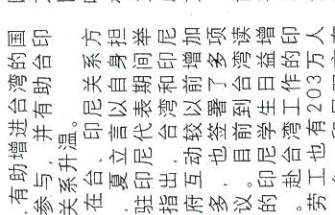 ，有助增进台湾的国
参与，并有助台印
关系升温。
在台、印尼关系方
，夏立言以自身担
驻印尼代表期间举
指出，台湾和印尼
府互动较以前增加
多，也签署了多项
议。目前到台湾读
的印尼学生日益增
，赴台湾工作的印
劳工也有203万人